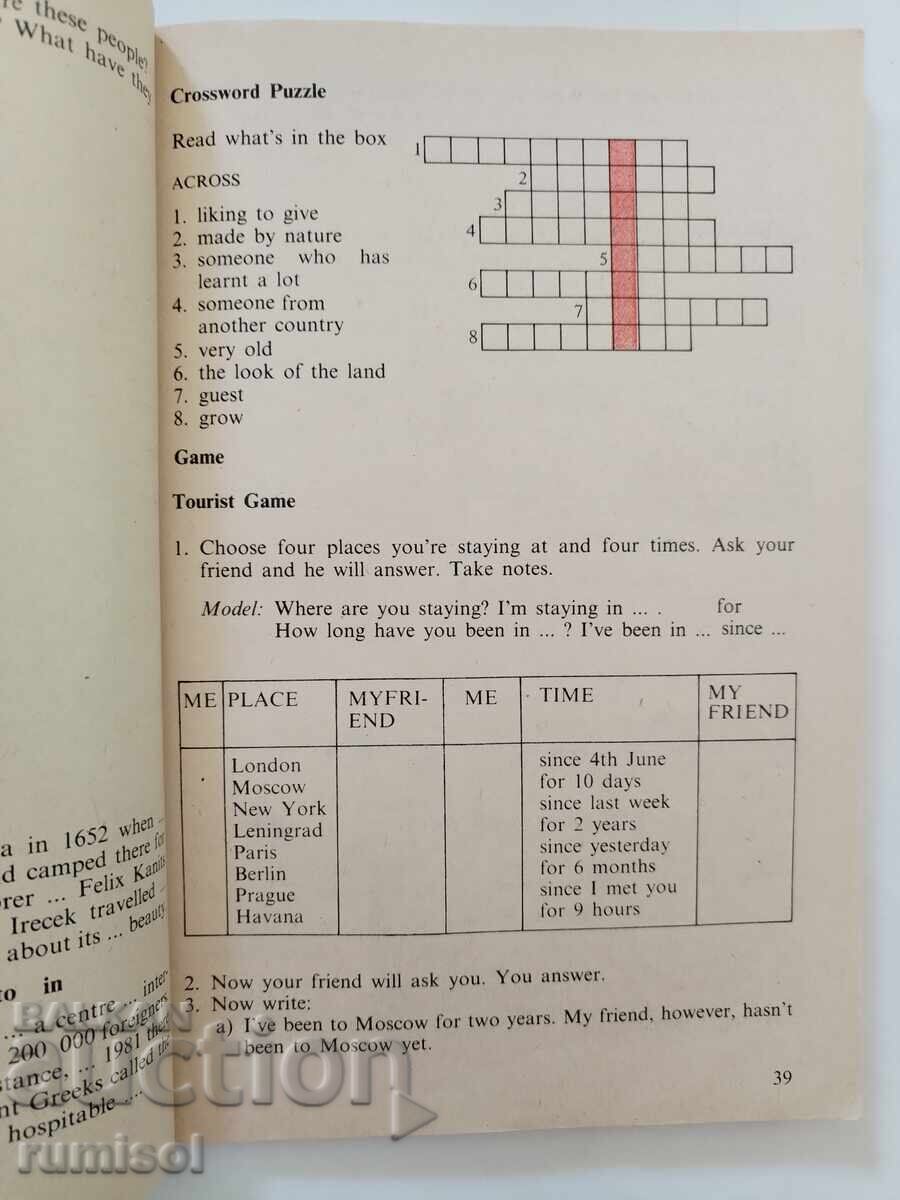 re these people?
What have they
Crossword Puzzle
Read what's in the box
ACROSS
1. liking to give
2. made by nature
3. someone who has
learnt a lot
4. someone from
another country
5. very old
6. the look of the land
7. guest
8. grow
1
2
3
4
5
6
7
8
Game
Tourist Game
1. Choose four places you're staying at and four times. Ask your
friend and he will answer. Take notes.
Model: Where are you staying? I'm staying in ... . for
How long have you been in ... ? I've been in ... since ...
ME PLACE MYFRI- ME TIME MY
END FRIEND
London since 4th June
Moscow for 10 days
New York since last week
Leningrad for 2 years
Paris since yesterday
Berlin for 6 months
Prague since I met you
Havana for 9 hours
2. Now your friend will ask you. You answer.
3. Now write:
a) I've been to Moscow for two years. My friend, however, hasn't
been to Moscow yet.
39
a in 1652 when
d camped there for
orer ... Felix Kanits
Irecek travelled
about its ... beauty
to in
... a centre ... inter-
200 000 foreigners
stance, ... 1981 there
nt Greeks called the
hospitable ...
BALKAN
auction
rumisol